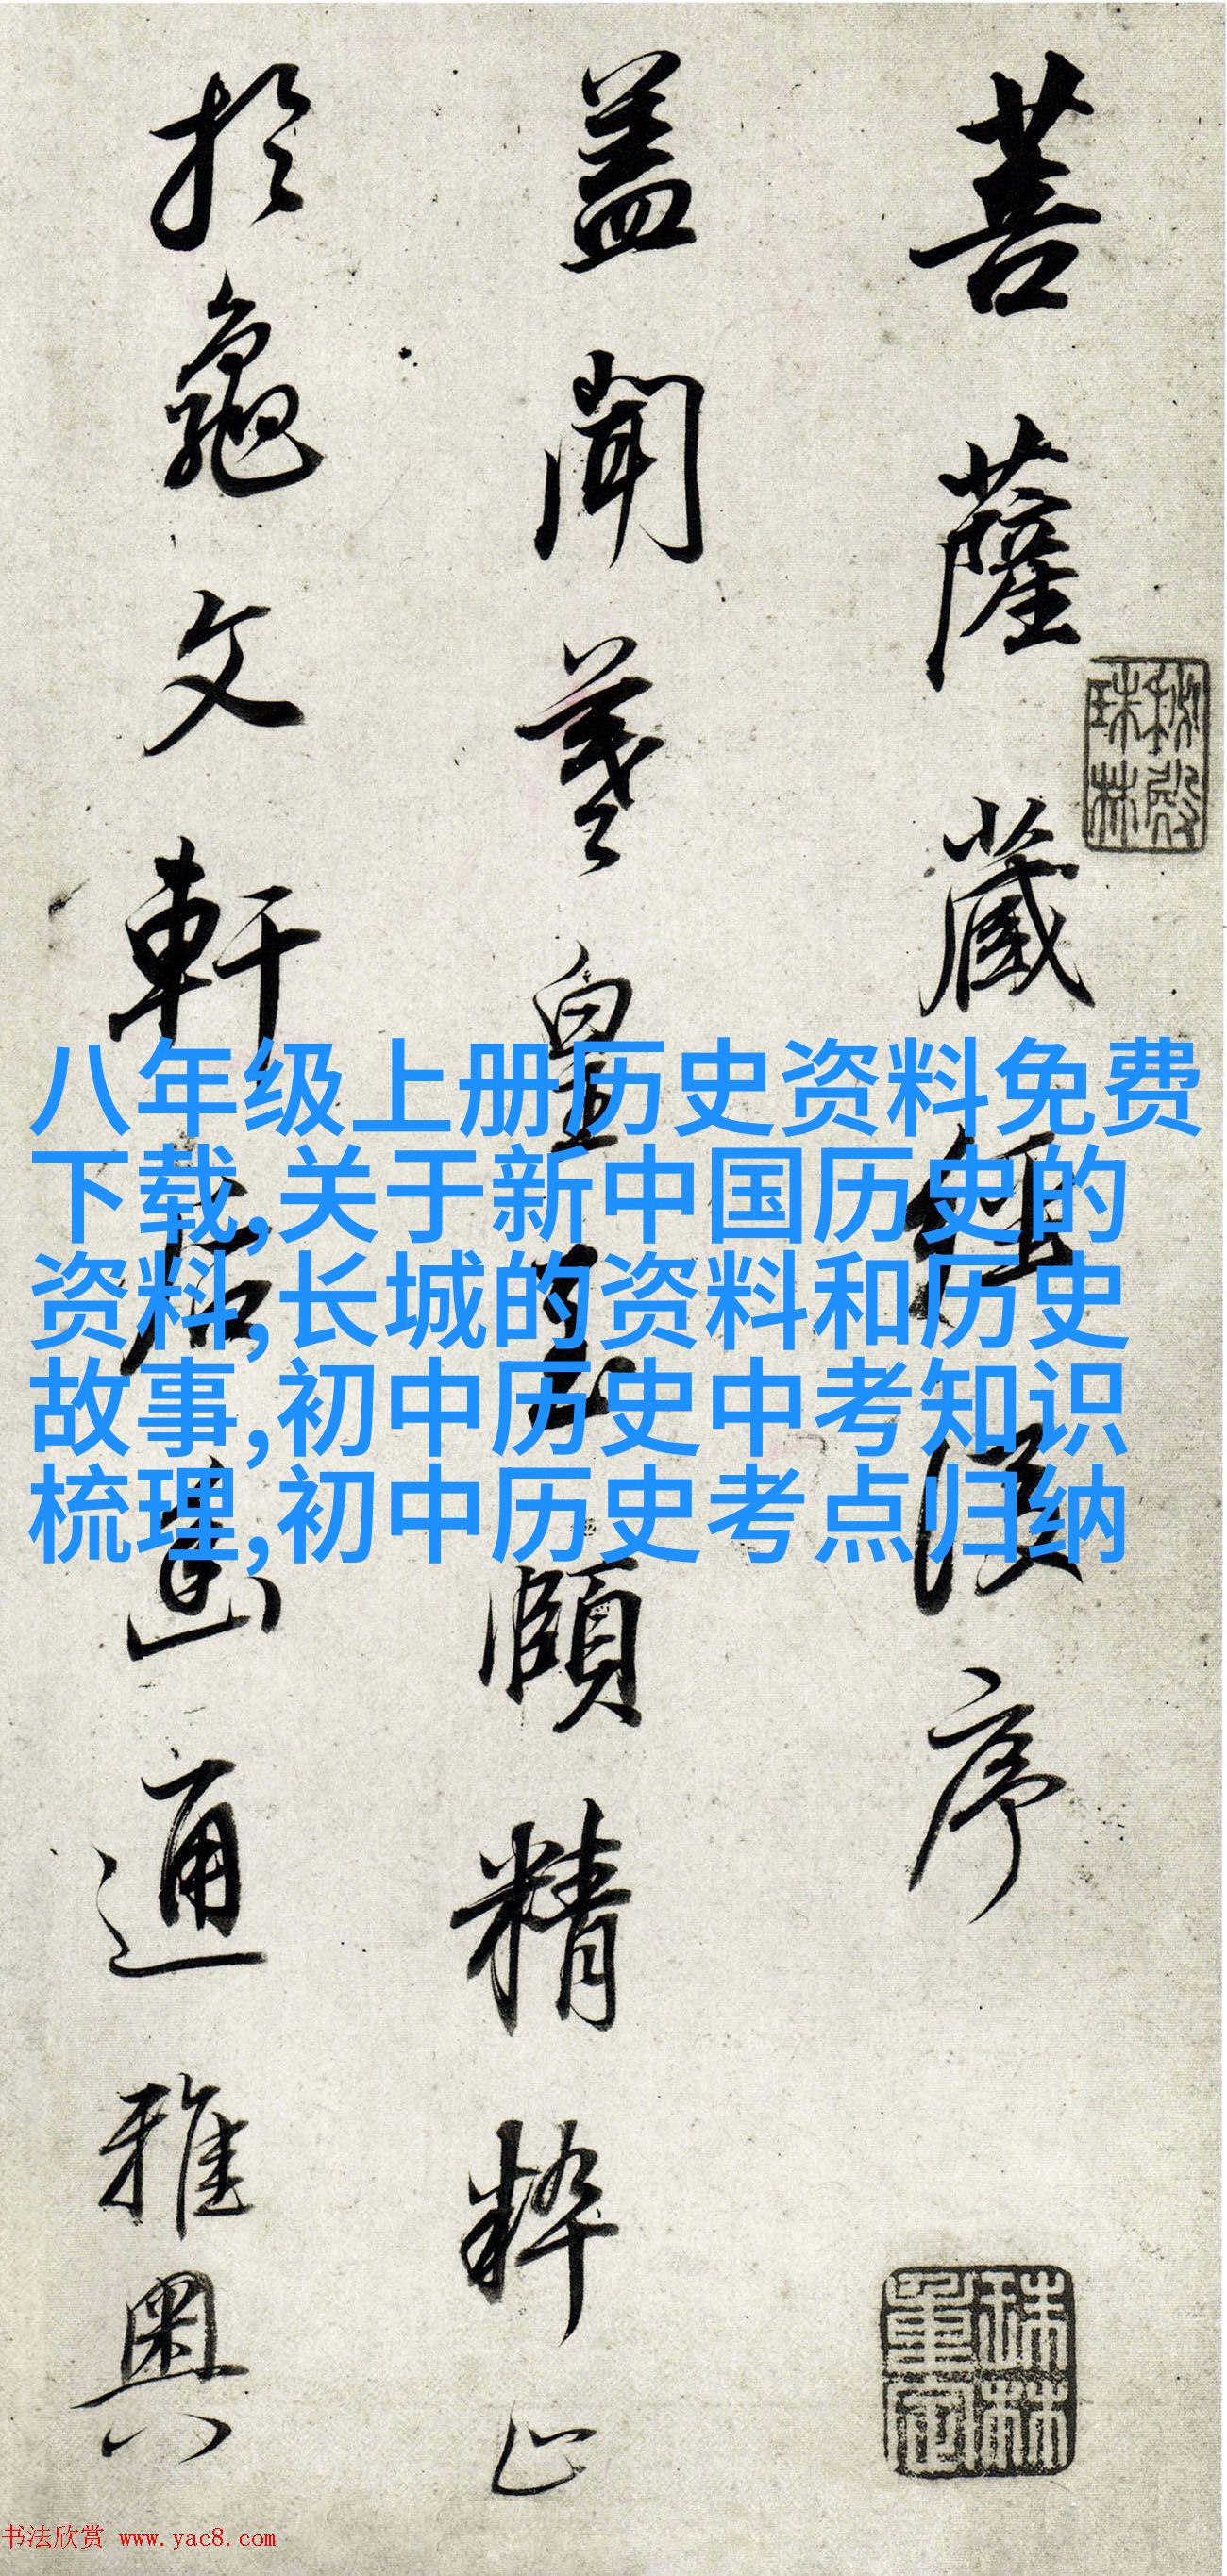 菩薩藏經後序
蓋聞羲皇至賾精粹止
於龜文軒后幽通雅奥
秘殿珠林
珠林重定
八年级上册历史资料免费
下载,关于新中国历史的
资料,长城的资料和历史
故事,初中历史中考知识
梳理,初中历史考点归纳
书法欣赏 www.yac8.com